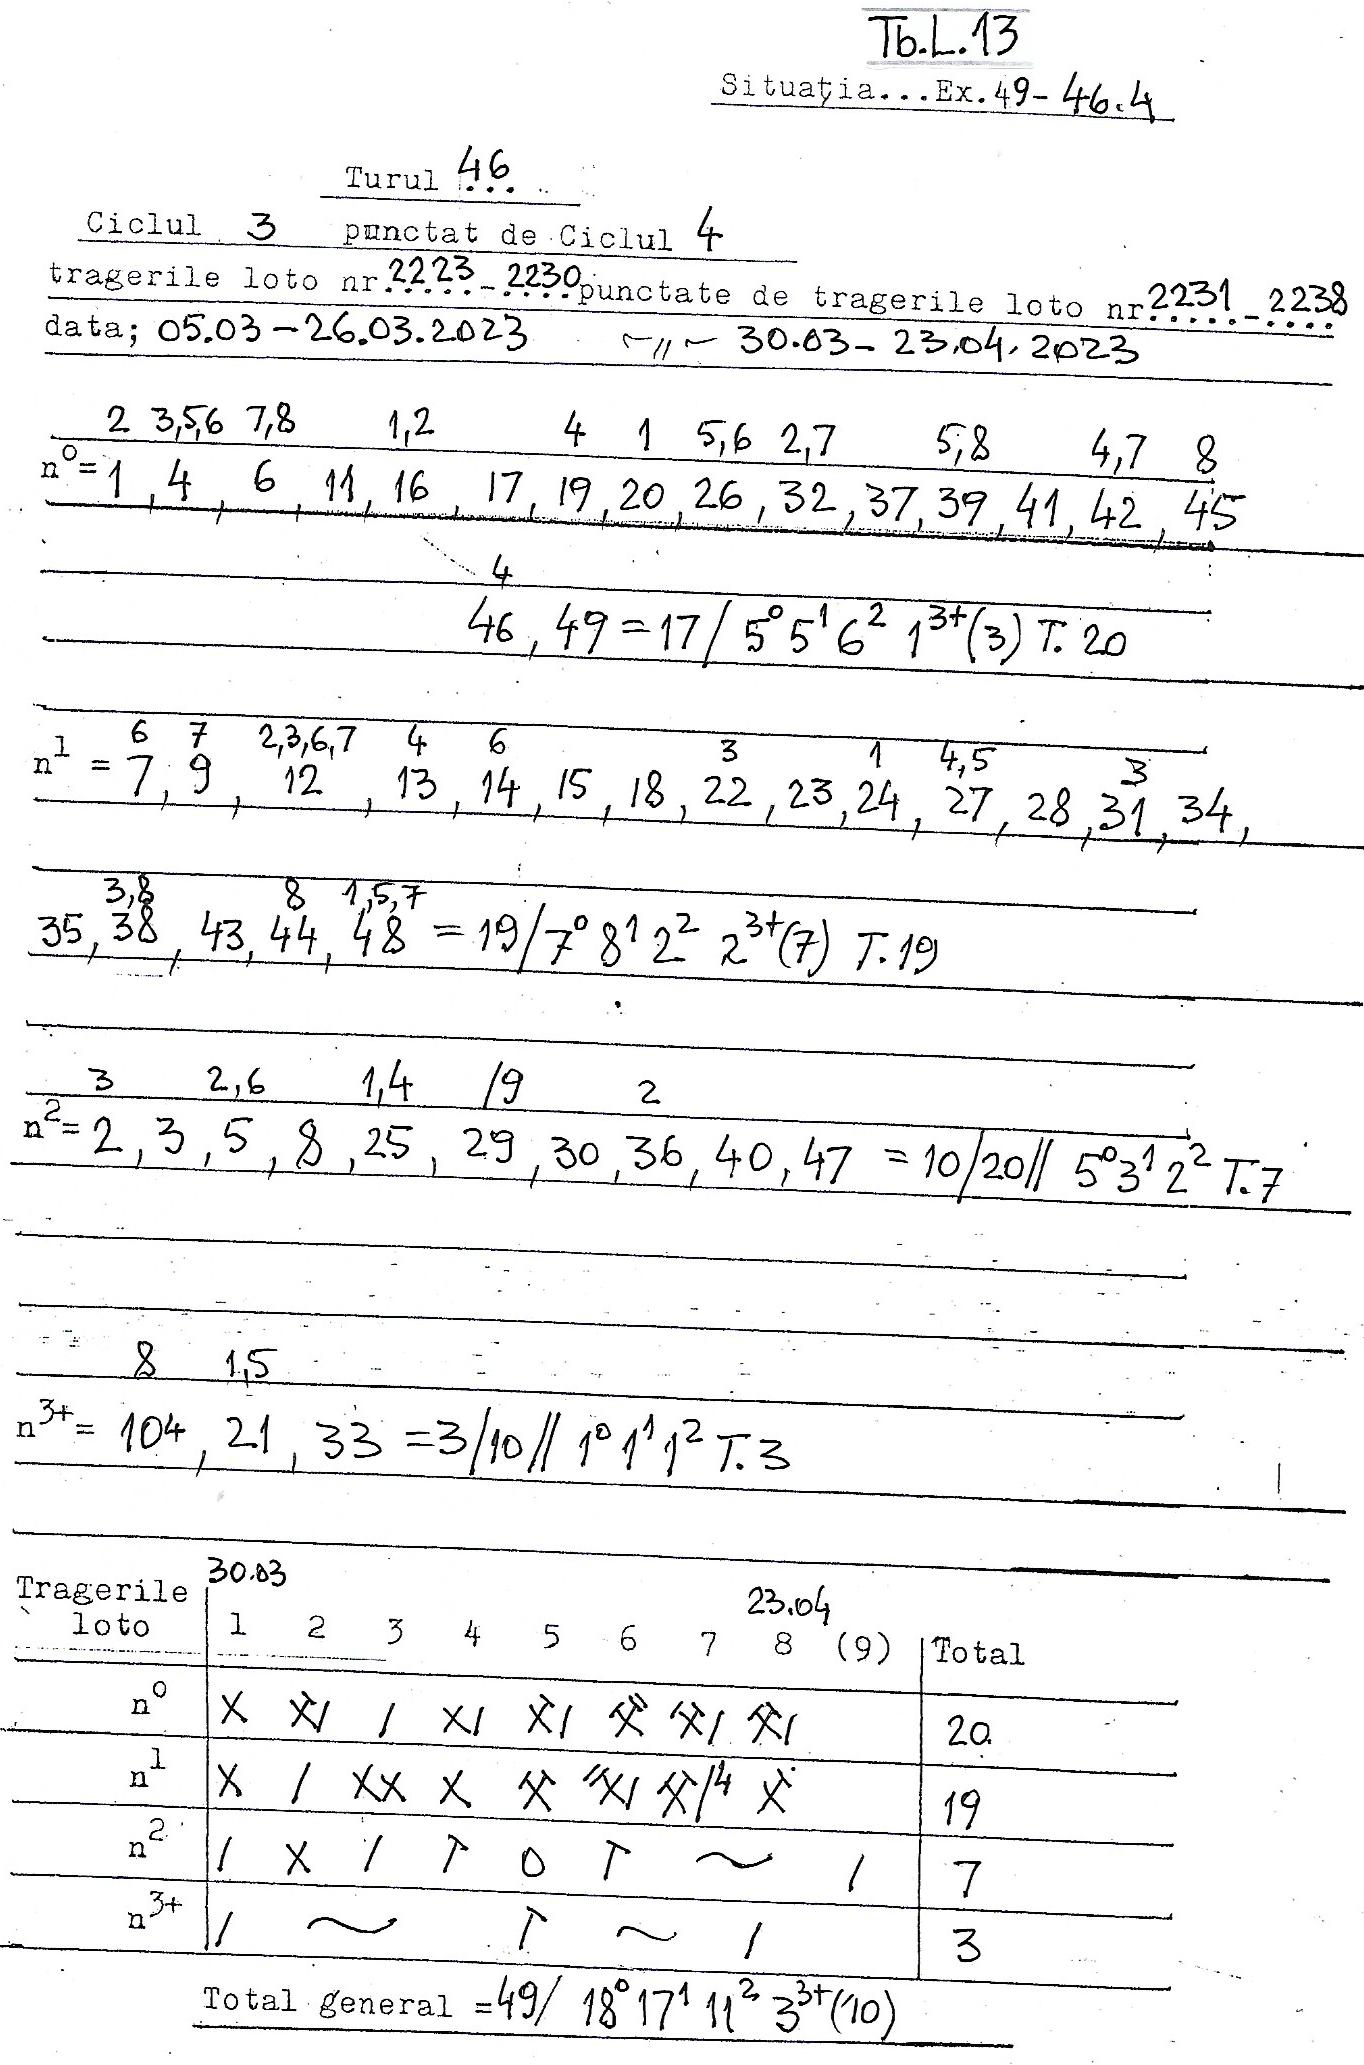 Tb.L.13
Situaţia...Ex.49-46.4
Turul 46
Ciclul 3 punctat de Ciclul 4
tragerile loto nr.2223-2230 punctate de tragerile loto nr 2231-2238
data; 05.03-26.03.2023 ~〃~ 30.03-23.04.2023
2 3,5,6 7,8 1,2 4 1 5,6 2,7 5,8 4,7 8
n⁰= 1, 4, 6, 11, 16, 17, 19, 20, 26, 32, 37, 39, 41, 42, 45
4
46, 49 = 17/ 5⁰ 5¹ 6² 1³⁺(3) T. 20
6 7 2,3,6,7 4 6 3 1 4,5 3
n¹ = 7, 9, 12, 13, 14, 15, 18, 22, 23, 24, 27, 28, 31, 34,
3,8 8 1,5,7
35, 38, 43, 44, 48 = 19/7⁰ 8¹ 2² 2³⁺(7) T.19
3 2,6 1,4 /9 2
n²= 2, 3, 5, 8, 25, 29, 30, 36, 40, 47 = 10/20// 5⁰ 3¹ 2² T.7
8 1,5
n³⁺= 104, 21, 33 =3/10// 1⁰ 1¹ 1² T.3
30.03
Tragerile
23.04
loto 1 2 3 4 5 6 7 8 (9) Total
n⁰ 20
n¹ 4 19
n² 7
n³⁺ 3
Total general =49/ 18⁰ 17¹ 11² 3³⁺(10)